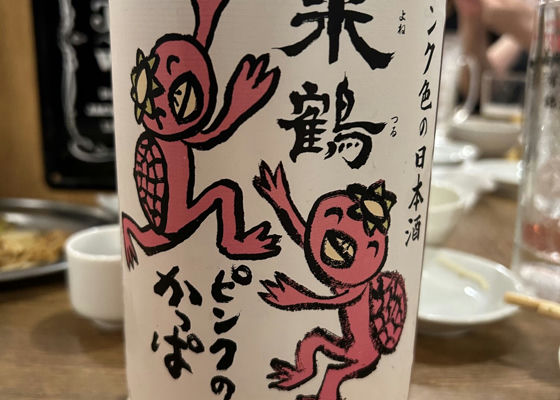 ンク色の日本酒
米鶴
よね
つる
ピンクの
かっぱ